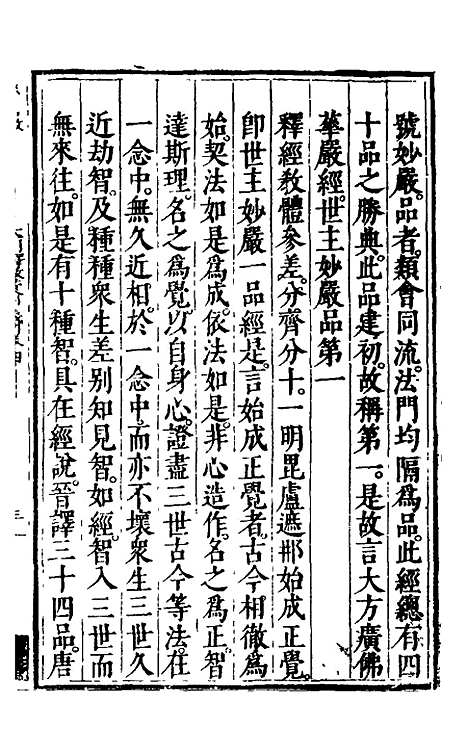 號妙嚴。品者。類會同流。法門均隔爲品。此經總有四
十品之勝典。此品建初。故稱第一。是故言大方廣佛
華嚴經。世主妙嚴品第一
釋經敎體參差。分齊分十。一明毘盧遮那始成正覺。
卽世主妙嚴一品經是。言始成正覺者。古今相徹爲
始。契法如是爲成。依法如是。非心造作。名之爲正智
達斯理。名之爲覺。以自身心。證盡三世古今等法。在
一念中。無久近相。於一念中。而亦不壞衆生三世久
近劫智。及種種衆生差别知見智。如經。智入三世而
無來往。如是有十種智。具在經說。晉譯三十四品。唐